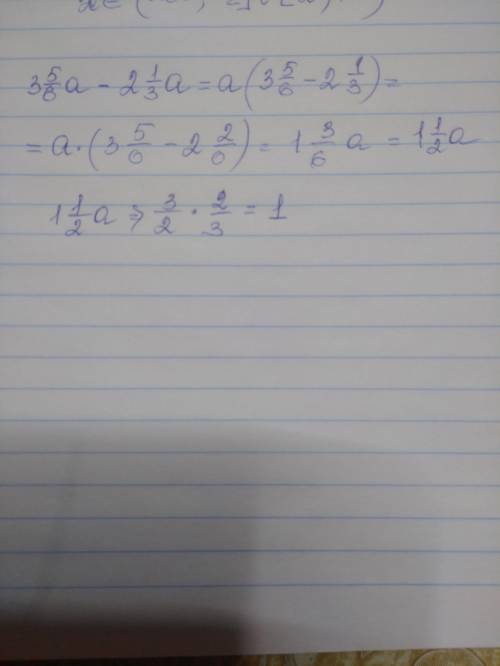 3 5/6 a - 2 1/3 a = a (3 5/6 - 2 1/3) =
= a · (3 5/6 - 2 2/6) = 1 3/6 a = 1 1/2 a
1 1/2 a ⇒ 3/2 · 2/3 = 1